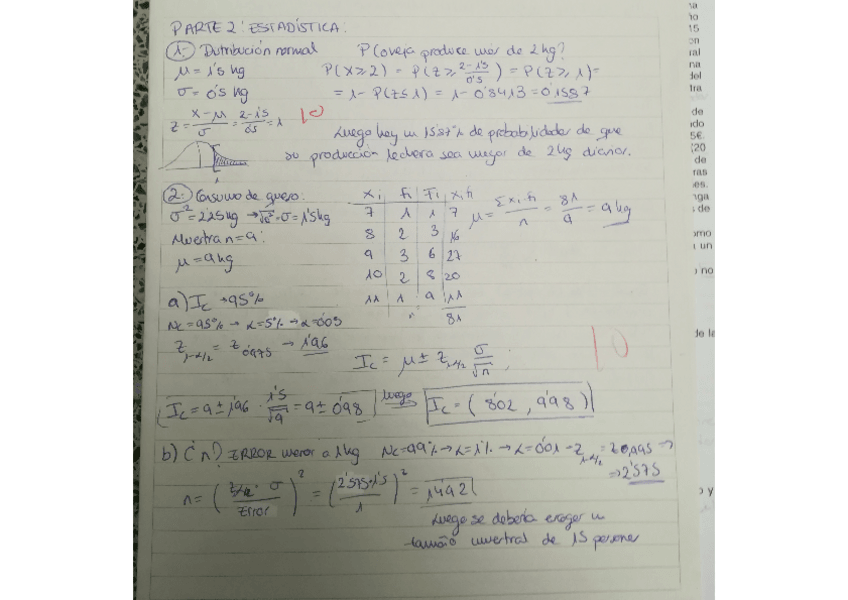 PARTE 2: ESTADÍSTICA:
1.- Distribución normal P(oveja produce más de 2 kg?
μ = 1'5 kg P(X≥2) = P(Z≥ 2-1'5/0'5) = P(Z≥1)=
σ = 0'5 kg = 1-P(Z≤1) = 1-0'8413=0'1587
Z = X-μ/σ = 2-1'5/0'5 = 1 10
Luego hay un 15'87% de probabilidades de que
su producción lechera sea mayor de 2kg diarios.
1
2. Consumo de queso: xi fi Fi xi·fi
σ² = 2'25 kg → √σ² = σ = 1'5 kg 7 1 1 7 μ = Σxi·fi/n = 81/9 = 9 kg
Muestra n = 9: 8 2 3 16
μ = 9 kg 9 3 6 27
10 2 8 20
a) Ic → 95% 11 1 9 11
81
Nc = 95% → α = 5% → α = 0'05
Z1-α/2 = Z0'975 → 1'96
Ic = μ ± Z1-α/2 σ/√n ; 10
Ic = 9 ± 1'96 · 1'5/√9 = 9 ± 0'98 luego Ic = (8'02, 9'98)
b) ¿n? ERROR menor a 1kg Nc=99% → α=1% → α=0'01 → Z1-α/2 = Z0'995 ⇒
⇒ 2'575
n = (Z1-α/2 · σ/Error)² = (2'575·1'5/1)² = 14'92
Luego se debería escoger un
tamaño muestral de 15 personas